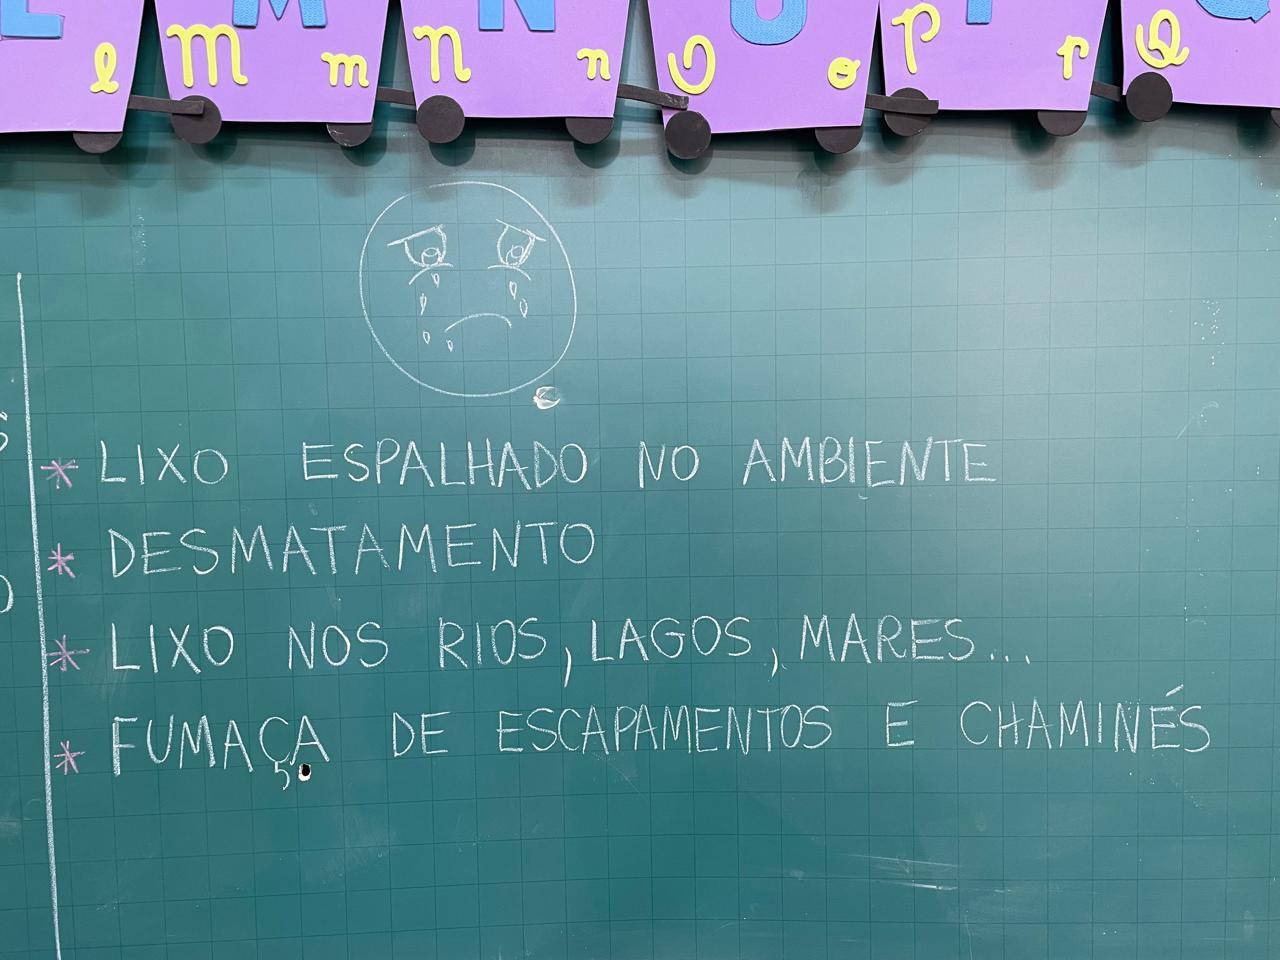 L M N O P Q
l M m N n O o P p Q
* LIXO ESPALHADO NO AMBIENTE
* DESMATAMENTO
* LIXO NOS RIOS, LAGOS, MARES...
* FUMAÇA DE ESCAPAMENTOS E CHAMINÉS